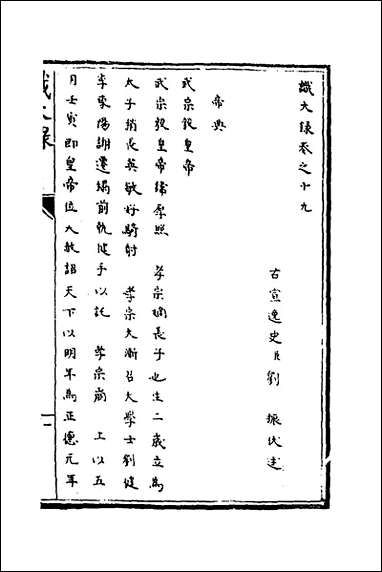 識大錄卷之十九
古宣逸史氏劉 振伏述
帝典
武宗毅皇帝
武宗毅皇帝諱厚照 孝宗嫡長子也生二歲立為
太子稍長英敏好騎射 孝宗大漸召大學士劉健
李東陽謝遷榻前執健手以託 孝宗崩 上以五
月壬寅即皇帝位大赦詔天下以明年為正德元年
識大錄